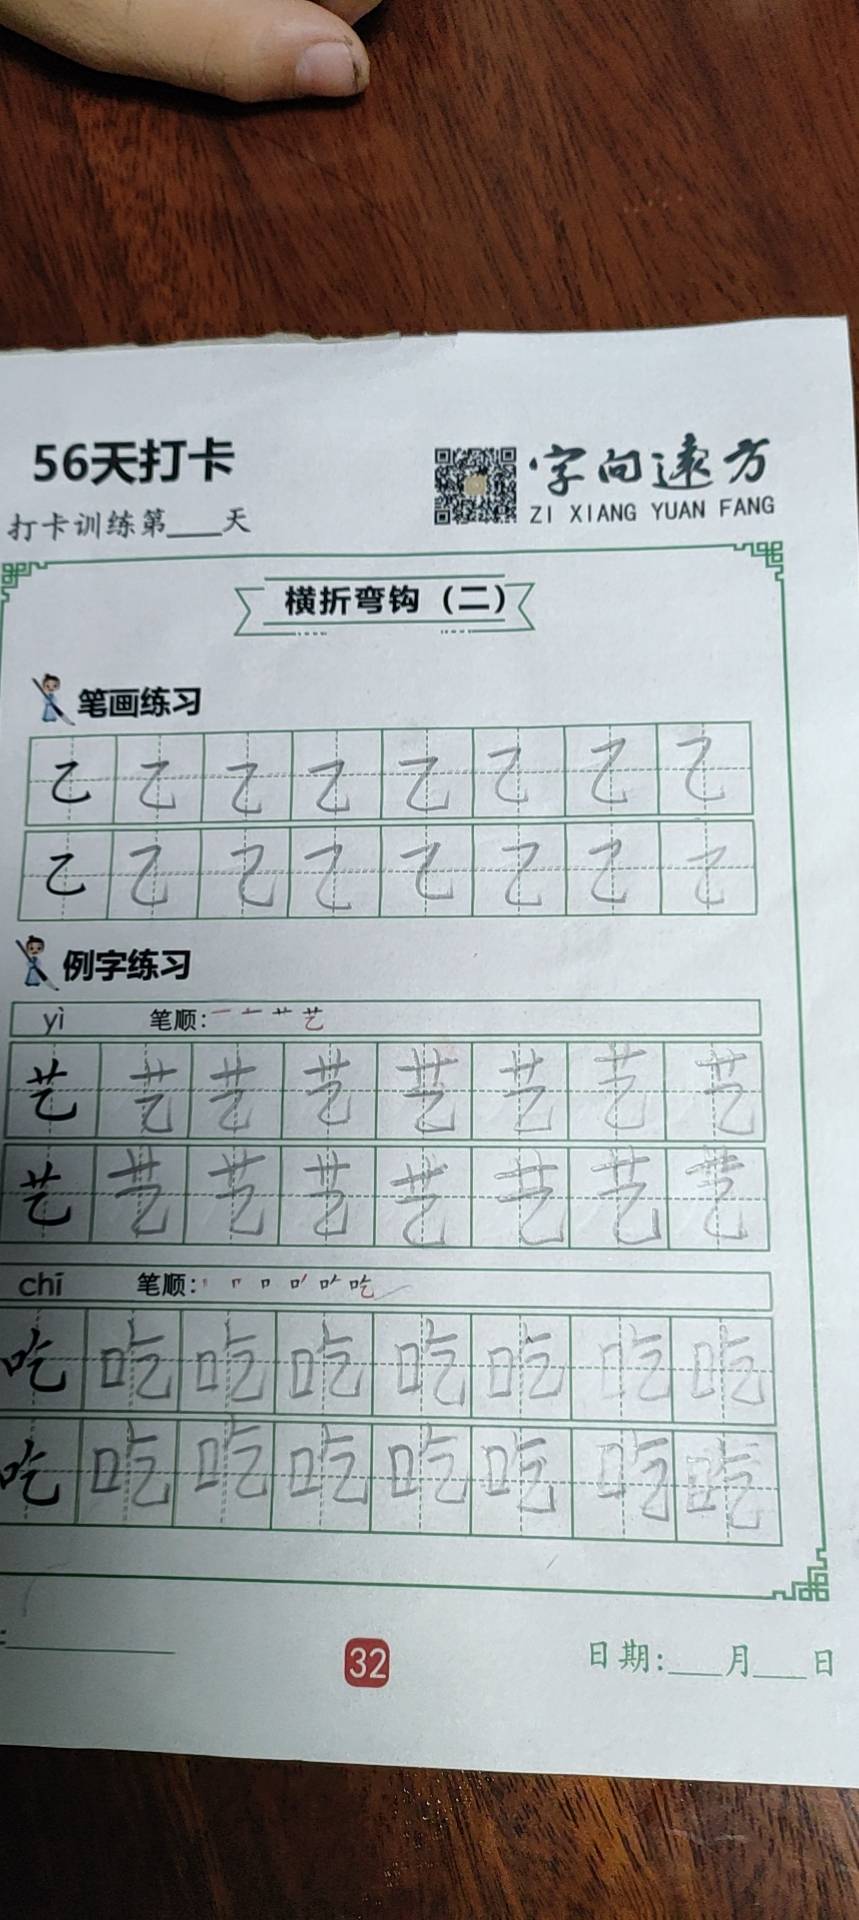 56天打卡
字向远方
ZI XIANG YUAN FANG
打卡训练第___天
横折弯钩（二）
笔画练习
乙 乙 乙 乙 乙 乙 乙 乙
乙 乙 乙 乙 乙 乙 乙 乙
例字练习
yì 笔顺: 一 艺
艺 艺 艺 艺 艺 艺 艺 艺
艺 艺 艺 艺 艺 艺 艺 艺
chī 笔顺: 丨 口 吃
吃 吃 吃 吃 吃 吃 吃 吃
吃 吃 吃 吃 吃 吃 吃 吃
32
日期:___月___日